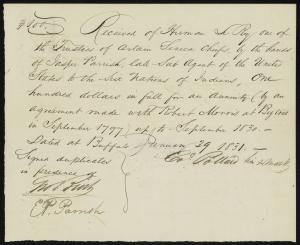 $100. Received of Herman B. Roy one of
the Trustees of certain Seneca Chiefs, by the hands
of Jasper Parrish, late Sub Agent of the United
States to the Six Nations of Indians, One
hundred dollars in full for an Annuity by an
agreement made with Robert Morris at Big tree
in September 1797 up to September 1830.
Dated at Buffalo January 29 1831.
Signed duplicates
in presence of
Pollard his mark
E. Parrish